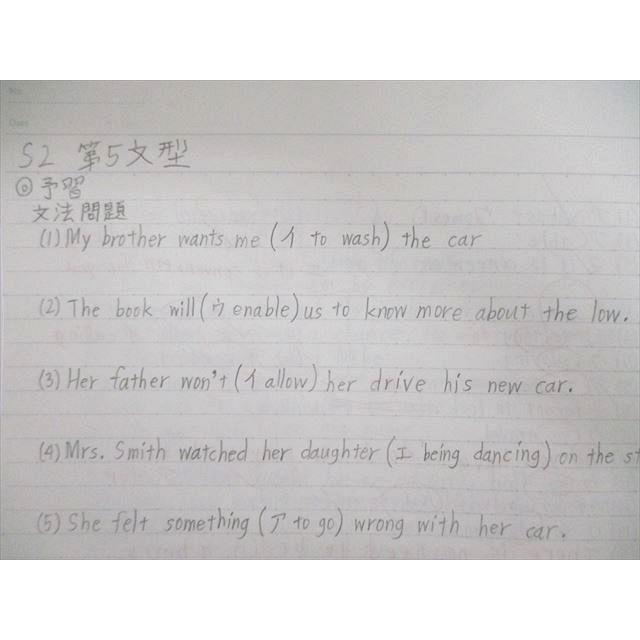 No.
Date
S2 第5文型
◎予習
文法問題
(1) My brother wants me (イ to wash) the car
(2) The book will (ウ enable) us to know more about the low.
(3) Her father won't (イ allow) her drive his new car.
(4) Mrs. Smith watched her daughter (エ being dancing) on the st
(5) She felt something (ア to go) wrong with her car.